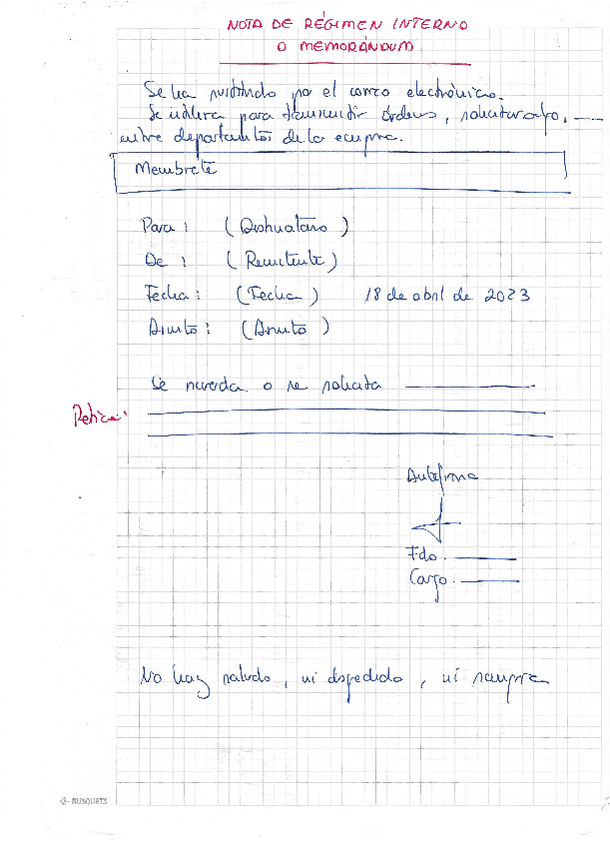 NOTA DE RÉGIMEN INTERNO
O MEMORÁNDUM
Se ha sustituido por el correo electrónico.
Se utiliza para transmitir órdenes, solicitar algo,
entre departamentos de la empresa.
Membrete
Para: (Destinatario)
De: (Remitente)
Fecha: (Fecha) 18 de abril de 2023
Asunto: (Asunto)
Se recuerda o se solicita
Antefirma
Fdo.
Cargo.
No hay saludo, ni despedida, ni
BUSQUETS